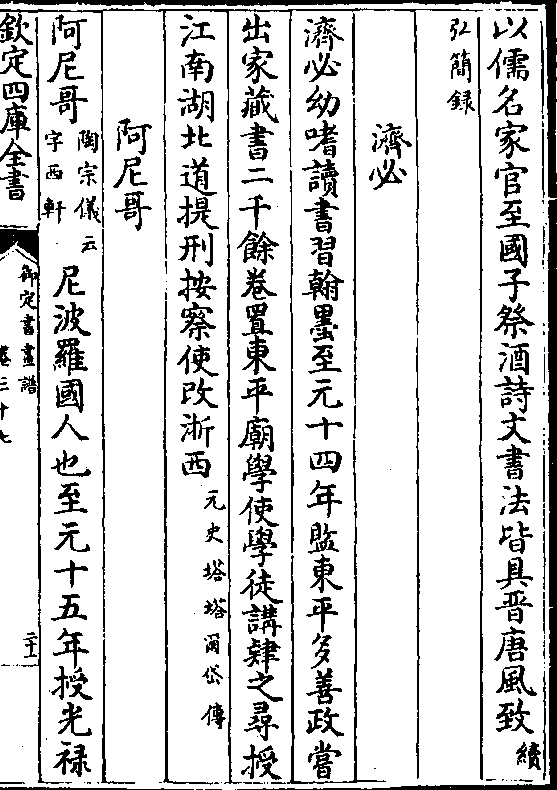 以儒名家官至國子祭酒詩文書法皆具晋唐風致續
弘簡録
濟必
濟必幼嗜讀書習翰墨至元十四年監東平多善政嘗
出家藏書二千餘卷置東平廟學使學徒講肄之尋授
江南湖北道提刑按察使改浙西元史塔塔爾岱傳
阿尼哥
阿尼哥陶宗儀云字西軒尼波羅國人也至元十五年授光禄
欽定四庫全書
御定書畫譜
卷三十七
二十